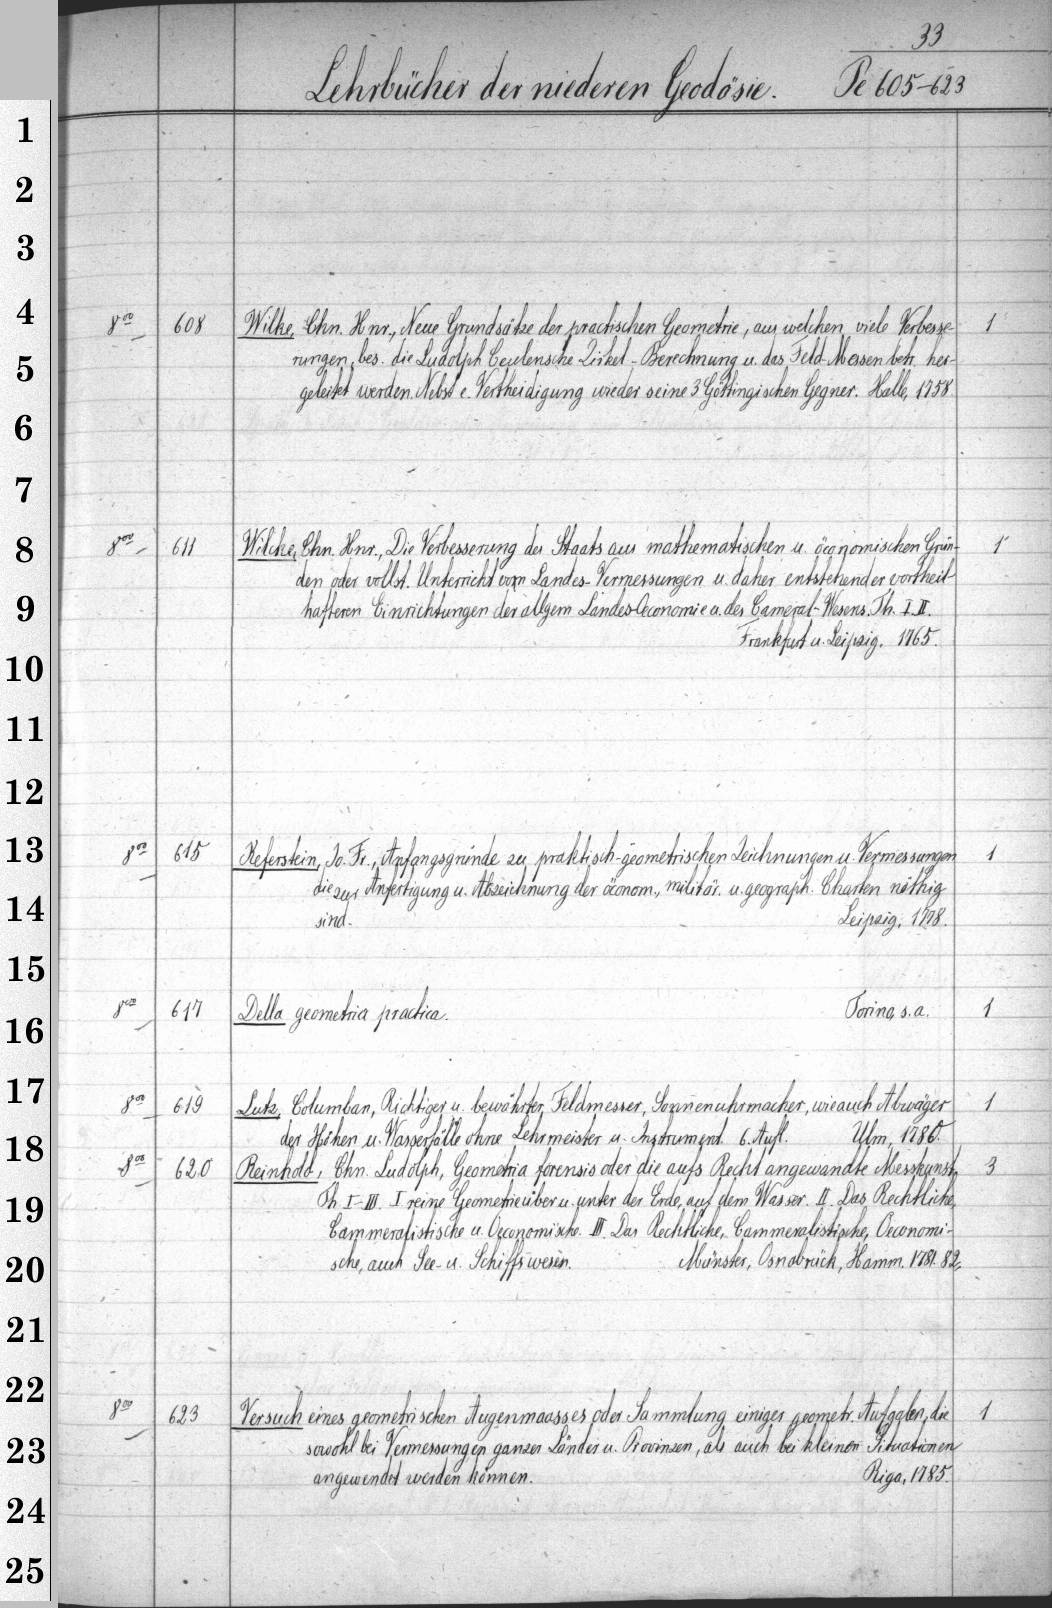 33
Lehrbücher der niederen Geodösie. Pe 605-623
1
2
3
4
8vo 608 Wilke, Chn. Hnr., Neue Grundsätze der practischen Geometrie, aus welchen viele Verbesse- 1
5
rungen, bes. die Ludolph Ceulensche Zirkel-Berechnung u. das Feld-Messen betr. her-
geleitet werden. Nebst e. Vertheidigung wieder seine 3 Göttingischen Gegner. Halle, 1758.
6
7
8
8vo 611 Wilcke, Chn. Hnr., Die Verbesserung des Staats aus mathematischen u. öconomischen Grün- 1
den oder vollst. Unterricht vom Landes-Vermessungen u. daher entstehender vortheil-
9
hafteren Einrichtungen der allgem Landes-Oeconomie u. des Cameral-Wesens. Th. I.II.
Frankfurt u. Leipzig. 1765.
10
11
12
13
8vo 615 Keferstein, Jo. Fr., Anfangsgründe zu praktisch-geometrischen Zeichnungen u. Vermessungen 1
die zur Anfertigung u. Abzeichnung der öconom., militär. u. geograph. Charten nöthig
14
sind. Leipzig, 1778.
15
8vo 617 Della geometria practica. Torino, s.a. 1
16
17
8vo 619 Lutz, Columban, Richtiger u. bewährter Feldmesser, Sonnenuhrmacher, wie auch Abwäger 1
der Höhen u. Wasserfälle ohne Lehrmeister u. Instrument. 6. Aufl. Ulm, 1786.
18
8vo 620 Reinhold, Chn. Ludolph, Geometria forensis oder die aufs Recht angewandte Messkunst, 3
19
Th. I-III. I reine Geometrie über u. unter der Erde, auf dem Wasser. II. Das Rechtliche,
Cammeralistische u. Oeconomische. III. Das Rechtliche, Cammeralistische, Oeconomi-
20
sche, auch See- u. Schiffswesen. Münster, Osnabrück, Hamm. 1781. 82.
21
22
8vo 623 Versuch eines geometrischen Augenmaasses oder Sammlung einiger geometr. Aufgaben, die 1
23
sowohl bei Vermessungen ganzer Länder u. Provinzen, als auch bei kleinen Situationen
angewendet werden können. Riga, 1785.
24
25